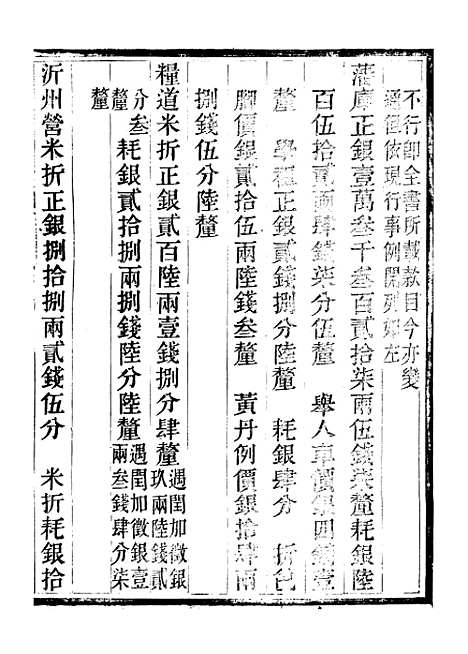 不行即全書所載款目今亦變
通但依現行事例開列如左
藩庫正銀壹萬叁千叁百貳拾柒兩伍錢柒釐耗銀陸
百伍拾貳兩肆錢柒分伍釐　舉人車價銀四錢壹
釐　學程正銀貳錢捌分陸釐　耗銀肆分　折色
腳價銀貳拾伍兩陸錢叁釐　黃丹例價銀拾肆兩
捌錢伍分陸釐
糧道米折正銀貳百陸兩壹錢捌分肆釐遇閏加徵銀
玖兩陸錢貳
分叁
釐　耗銀貳拾捌兩捌錢陸分陸釐遇閏加徵銀壹
兩叁錢肆分柒
釐
沂州營米折正銀捌拾捌兩貳錢伍分　米折耗銀拾